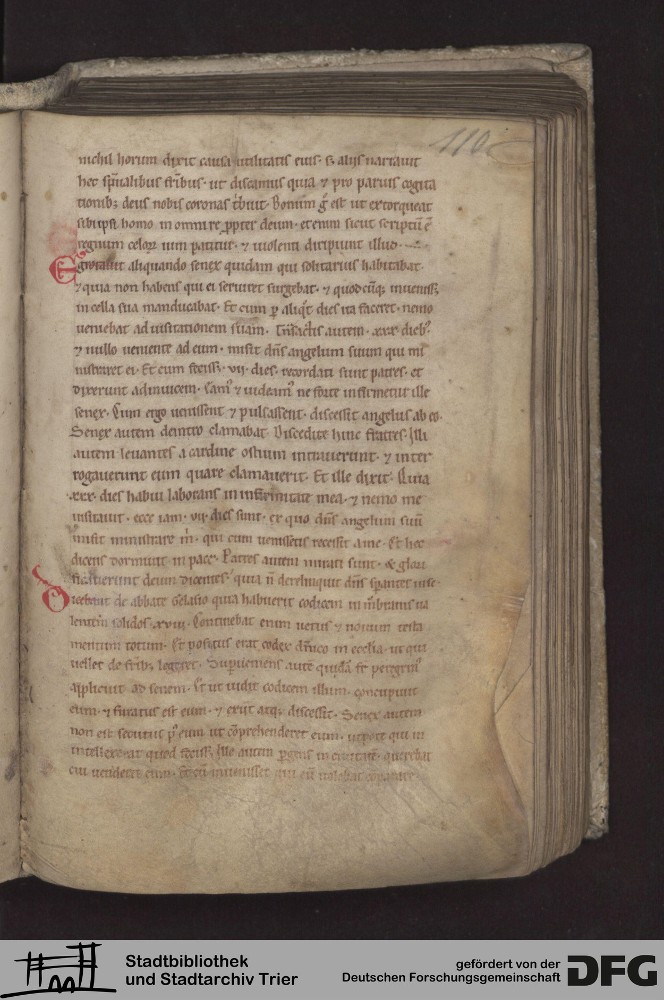 110
nichil horum dixit causa utilitatis eius. s; aliis narrauit
hec spũalibus frĩbus. ut discamus quia & pro paruis cogita
tionib; deus nobis coronas t̃buit. Bonum g̃ est ut extorqueat
sibi ipsi homo in omni re p̱pter deum. etenim sicut scriptũ ẽ
regnum celoꝝ uim patitur. & uiolenti diripiunt illud.
Egrotauit aliquando senex quidam qui solitarius habitabat.
& quia non habens qui ei seruiret surgebat. & quodcũq; inueniss;
in cella sua manducabat. Et cum p aliq̃t dies ita faceret. nemo
ueniebat ad uisitationem suam. Transactis autem .xxx. dieb;
& nullo ueniente ad eum. misit dñs angelum suum qui mi
nistraret ei. Et cum feciss; .vij. dies. recordati sunt patres. et
dixerunt adinuicem. Eam⁹ & uideam⁹ ne forte infirmetur ille
senex. Cum ergo uenissent & pulsassent. discessit angelus ab eo.
Senex autem deintro clamabat. Discedite hinc fratres. Illi
autem leuantes a cardine ostium intrauerunt. & inter
rogauerunt eum quare clamauerit. Et ille dixit. Quia
.xxx. dies habui laborans in infirmitate mea. & nemo me
uisitauit. ecce iam .vij. dies sunt. ex quo dñs angelum suũ
misit ministrare m̃. qui cum uenissetis recessit a me. Et hec
dicens dormiuit in pace. Patres autem mirati sunt. & glori
ficauerunt deum dicentes. quia ñ derelinquit dñs sperantes in se.
Dicebant de abbate Gelasio quia habuerit codicem in mẽbranis ua
lentẽ solidos .xviii. Continebat enim uetus & nouum testa
mentum totum. Et positus erat codex dñico in ecclia. ut qui
uellet de frĩb; legeret. Superueniens autẽ quidã fr̃ peregrin⁹
applicuit ad senem. Et ut uidit codicem illum. concupiuit
eum. & furatus est eum. & exiit atq; discessit. Senex autem
non est secutus p⁹ eum ut cõprehenderet eum. utpote qui in
intellexerat quod feciss;. Ille autem pergens in ciuitatẽ. querebat
cui uenderet eum. Et cũ inuenisset qui eũ uolebat cõparare
Stadtbibliothek
und Stadtarchiv Trier
gefördert von der
Deutschen Forschungsgemeinschaft
DFG